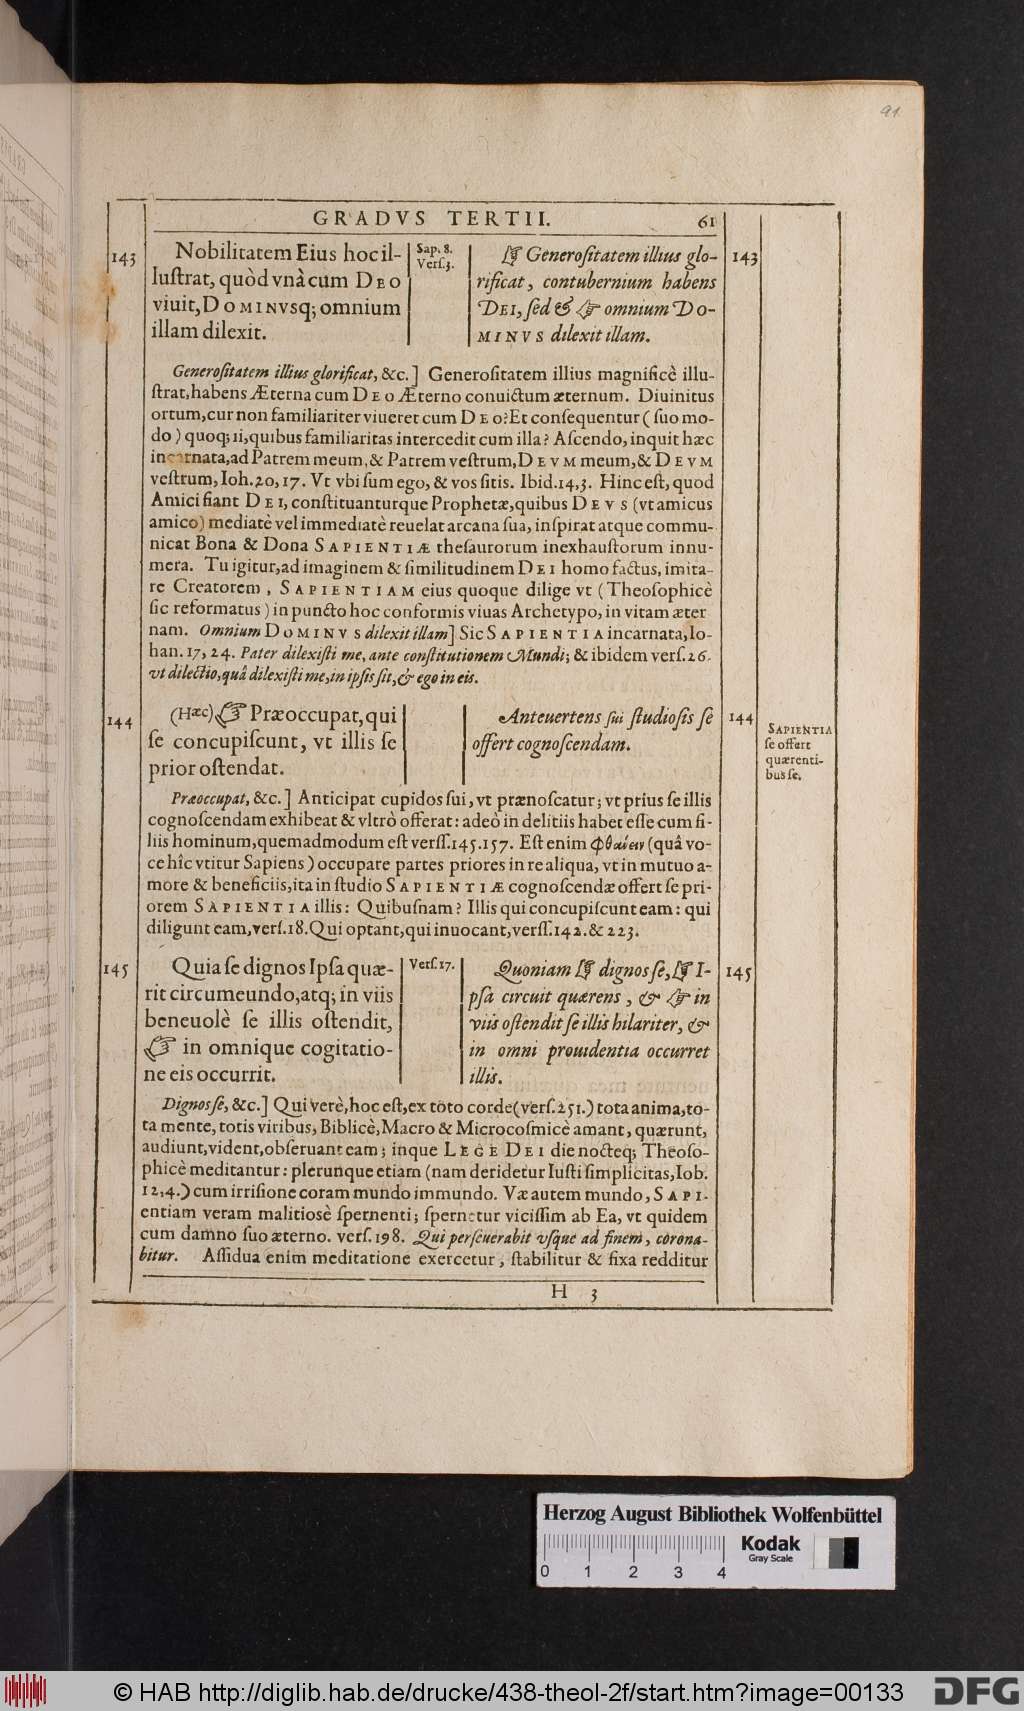 91
GRADVS TERTII. 61
143
Nobilitatem Eius hoc il-
luſtrat, quòd vnà cum DEO
viuit, DOMINVSq; omnium
illam dilexit.
Sap. 8.
Verſ. 3.
☞ Generoſitatem illius glo-
rificat, contubernium habens
DEI, ſed & ☞ omnium DO-
MINVS dilexit illam.
143
Generoſitatem illius glorificat, &c.] Generoſitatem illius magnificè illu-
ſtrat, habens Æterna cum DEO Æterno conuictum æternum. Diuinitus
ortum, cur non familiariter viueret cum DEO? Et conſequentur (ſuo mo-
do) quoq; ii, quibus familiaritas intercedit cum illa? Aſcendo, inquit hæc
incarnata, ad Patrem meum, & Patrem veſtrum, DEVM meum, & DEVM
veſtrum, Ioh. 20, 17. Vt vbi ſum ego, & vos ſitis. Ibid. 14, 3. Hinc eſt, quod
Amici fiant DEI, conſtituanturque Prophetæ, quibus DEVS (vt amicus
amico) mediatè vel immediatè reuelat arcana ſua, inſpirat atque commu-
nicat Bona & Dona SAPIENTIÆ theſaurorum inexhauſtorum innu-
mera. Tu igitur, ad imaginem & ſimilitudinem DEI homo factus, imita-
re Creatorem, SAPIENTIAM eius quoque dilige vt (Theoſophicè
ſic reformatus) in puncto hoc conformis viuas Archetypo, in vitam æter
nam. Omnium DOMINVS dilexit illam] Sic SAPIENTIA incarnata, Io-
han. 17, 24. Pater dilexiſti me, ante conſtitutionem Mundi; & ibidem verſ. 26.
vt dilectio, quâ dilexiſti me, in ipſis ſit, & ego in eis.
144
(Hæc) ☞ Præoccupat, qui
ſe concupiſcunt, vt illis ſe
prior oſtendat.
Anteuertens ſui ſtudioſis ſe
offert cognoſcendam.
144
SAPIENTIA
ſe offert
quærenti-
bus ſe.
Præoccupat, &c.] Anticipat cupidos ſui, vt prænoſcatur; vt prius ſe illis
cognoſcendam exhibeat & vltrò offerat: adeò in delitiis habet eſſe cum fi-
liis hominum, quemadmodum eſt verſſ. 145. 157. Eſt enim φθαίειν (quâ vo-
ce hîc vtitur Sapiens) occupare partes priores in re aliqua, vt in mutuo a-
more & beneficiis, ita in ſtudio SAPIENTIÆ cognoſcendæ offert ſe pri-
orem SAPIENTIA illis: Quibuſnam? Illis qui concupiſcunt eam: qui
diligunt eam, verſ. 18. Qui optant, qui inuocant, verſſ. 142. & 223.
145
Quia ſe dignos Ipſa quæ-
rit circumeundo, atq; in viis
beneuolè ſe illis oſtendit,
☞ in omnique cogitatio-
ne eis occurrit.
Verſ. 17.
Quoniam ☞ dignos ſe, ☞ I-
pſa circuit quærens, & ☞ in
viis oſtendit ſe illis hilariter, &
in omni prouidentia occurret
illis.
145
Dignos ſe, &c.] Qui verè, hoc eſt, ex toto corde (verſ. 251.) tota anima, to-
ta mente, totis viribus, Biblicè, Macro & Microcoſmicè amant, quærunt,
audiunt, vident, obſeruant eam; inque LEGE DEI die nocteq; Theoſo-
phicè meditantur: plerunque etiam (nam deridetur Iuſti ſimplicitas, Iob.
12, 4.) cum irriſione coram mundo immundo. Væ autem mundo, SAPI-
entiam veram malitiosè ſpernenti; ſpernetur viciſſim ab Ea, vt quidem
cum damno ſuo æterno. verſ. 198. Qui perſeuerabit vſque ad finem, corona-
bitur. Aſſidua enim meditatione exercetur, ſtabilitur & fixa redditur
H 3
Herzog August Bibliothek Wolfenbüttel
Kodak
Gray Scale
0 1 2 3 4
© HAB http://diglib.hab.de/drucke/438-theol-2f/start.htm?image=00133
DFG